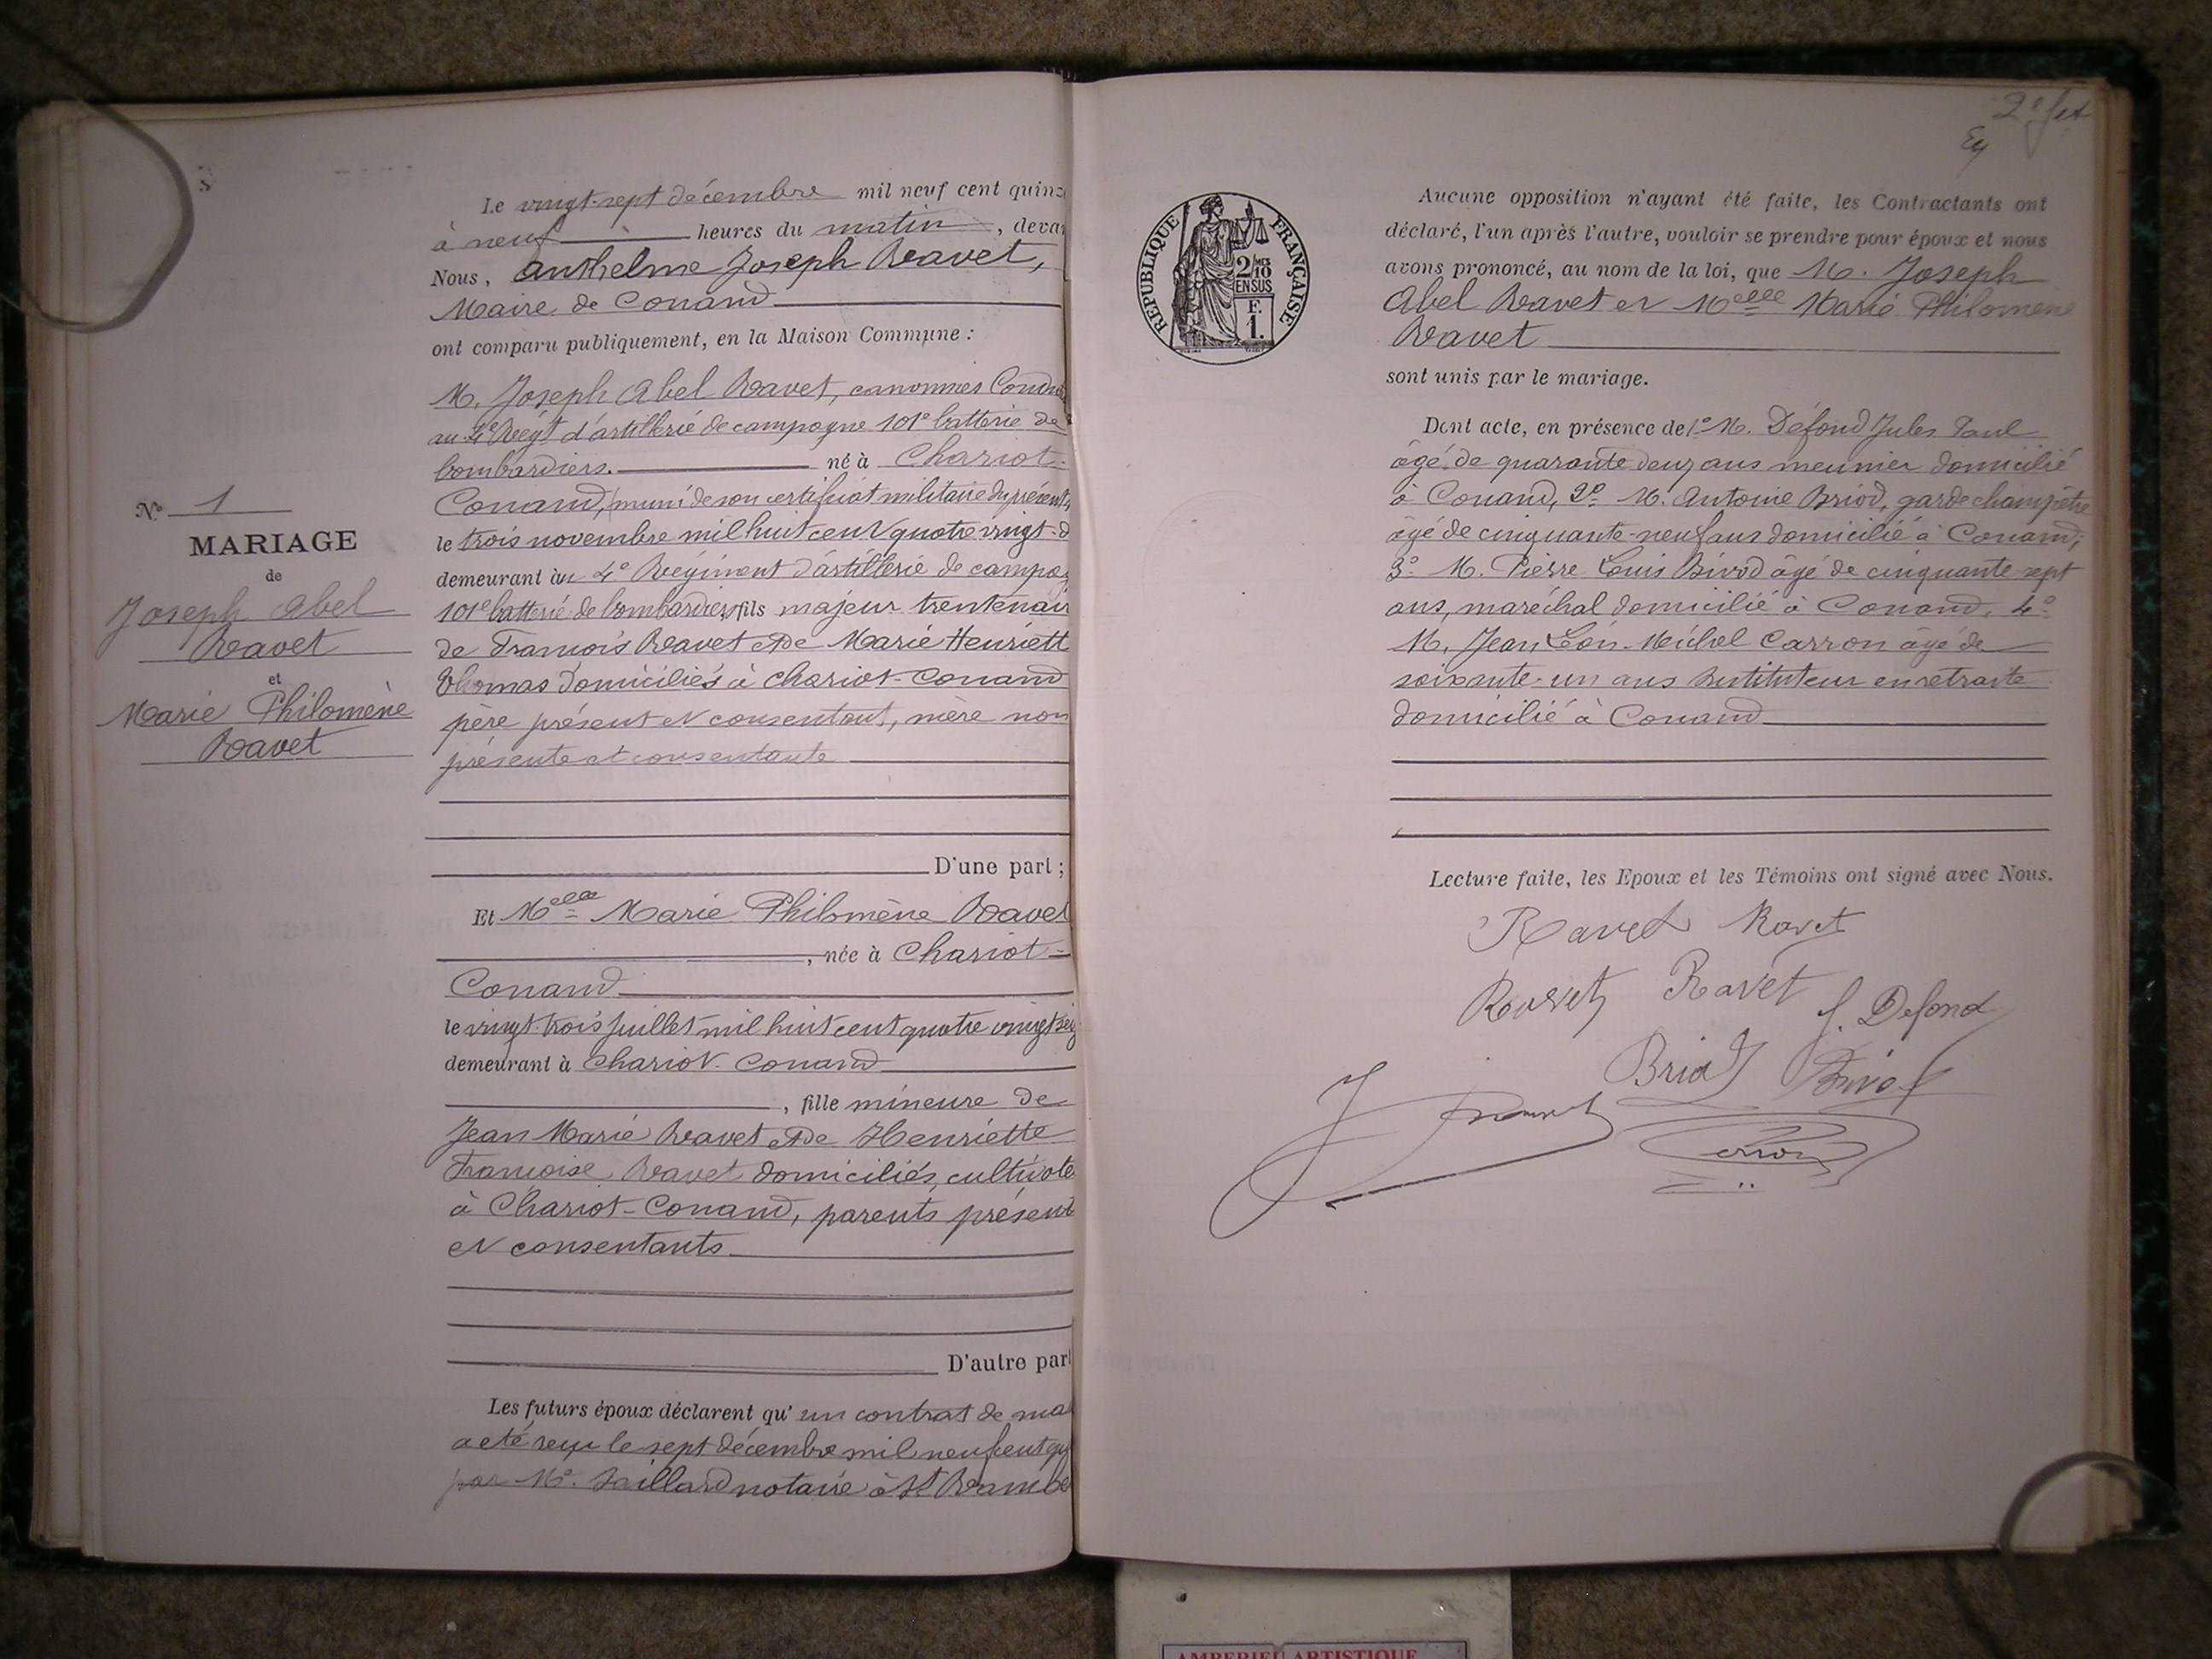 N.° 1
MARIAGE
de
Joseph Abel
Ravet
et
Marie Philomène
Ravet
Le vingt-sept décembre mil neuf cent quinz
à neuf heures du matin, deva
Nous, Anthelme Joseph Ravet,
Maire de Conand
ont comparu publiquement, en la Maison Commune :
M. Joseph Abel Ravet, canonnier Condu
au 4e Régt d'artillerie de campagne 101e batterie de
bombardiers. né à Chariot-
Conand, muni de son certificat militaire du présent
le trois novembre mil huit cent quatre vingt-d
demeurant au 4e Régiment d'artillerie de campag
101e batterie de bombardiers, fils majeur trentenair
de François Ravet et de Marie Henriett
Thomas domiciliés à Chariot-Conand
père présent et consentant, mère non
présente et consentante
D'une part ;
Et Melle Marie Philomène Ravet
, née à Chariot-
Conand
le vingt-trois juillet mil huit cent quatre vingt seiz
demeurant à Chariot-Conand
, fille mineure de
Jean Marie Ravet et de Henriette
Françoise Ravet domiciliés, cultivate
à Chariot-Conand, parents présent
et consentants
D'autre part
Les futurs époux déclarent qu'un contrat de ma
a été reçu le sept décembre mil neuf cent qu
par Me. Saillard notaire à St Rambe
2e fet
REPUBLIQUE FRANÇAISE
2/10 MES
EN SUS
F.
1.
Aucune opposition n'ayant été faite, les Contractants ont
déclaré, l'un après l'autre, vouloir se prendre pour époux et nous
avons prononcé, au nom de la loi, que M. Joseph
Abel Ravet et Melle Marie Philomène
Ravet
sont unis par le mariage.
Dont acte, en présence de 1° M. Défond Jules Paul
âgé de quarante deux ans meunier domicilié
à Conand, 2° M. Antoine Briod, garde champêtre
âgé de cinquante-neuf ans domicilié à Conand;
3° M. Pierre Louis Bivod âgé de cinquante-sept
ans, maréchal domicilié à Conand, 4°
M. Jean Léon Michel Carron âgé de
soixante-un ans Instituteur en retraite
domicilié à Conand
Lecture faite, les Epoux et les Témoins ont signé avec Nous.
Ravet Ravet
Ravet Ravet J. Defond
Briod
AMBERIEU ARTISTIQUE